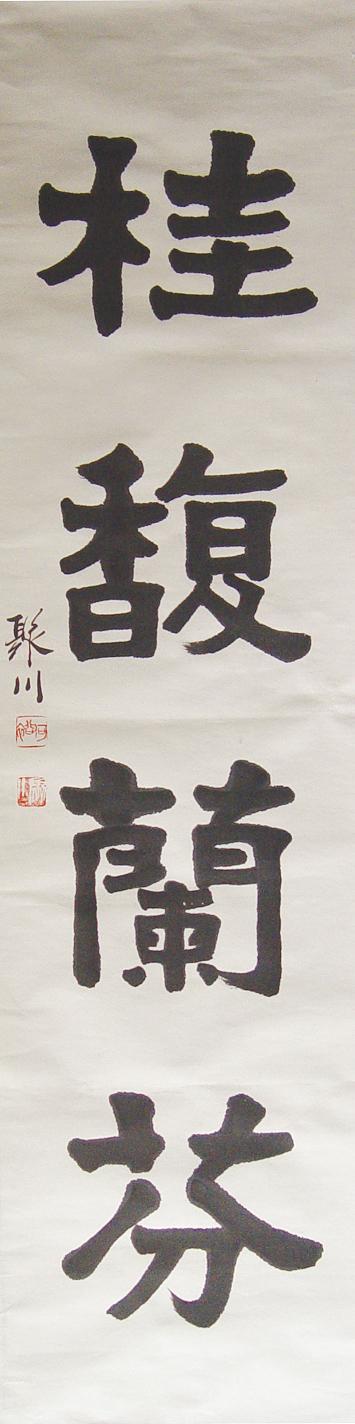 桂馥蘭芬
聚川